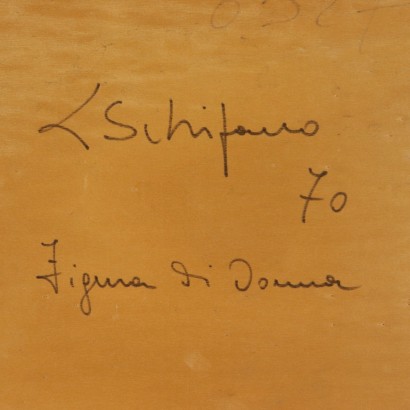 L Schifano
70
Figura di Donna